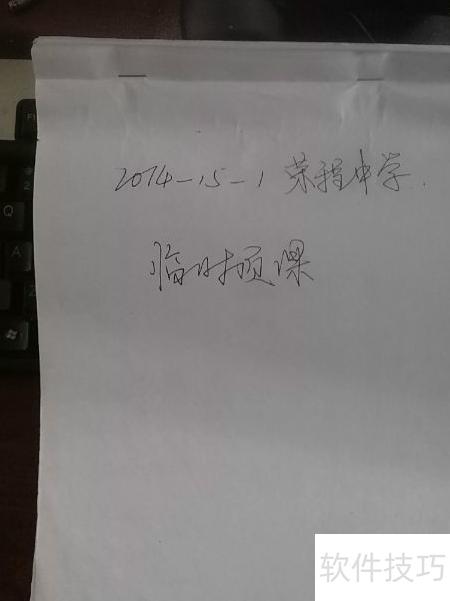 2014-15-1 荣程中学.
临时顶课
软件技巧